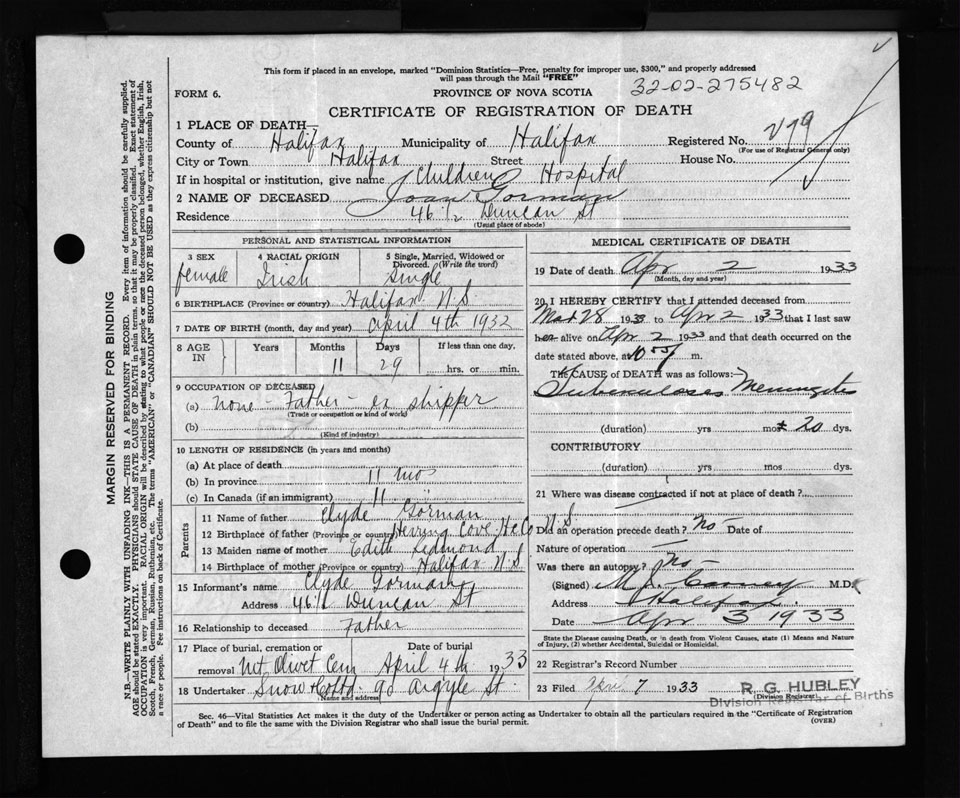 This form if placed in an envelope, marked "Dominion Statistics—Free, penalty for improper use, $300," and properly addressed
will pass through the Mail "FREE"
32-02-275482
FORM 6.
PROVINCE OF NOVA SCOTIA
CERTIFICATE OF REGISTRATION OF DEATH
1 PLACE OF DEATH—
County of Halifax Municipality of Halifax Registered No.
(For use of Registrar General only)
City or Town Halifax Street House No.
If in hospital or institution, give name Children Hospital
2 NAME OF DECEASED Joan Gorman
Residence 46 1/2 Duncan St
(Usual place of abode)
PERSONAL AND STATISTICAL INFORMATION
3 SEX 4 RACIAL ORIGIN 5 Single, Married, Widowed or
Divorced. (Write the word)
female Irish Single
6 BIRTHPLACE (Province or country) Halifax N.S.
7 DATE OF BIRTH (month, day and year) April 4th 1932
8 AGE IN Years Months Days If less than one day,
11 29 hrs. or min.
9 OCCUPATION OF DECEASED
(a) none - Father - ex shipper
(Trade or occupation or kind of work)
(b)
(Kind of industry)
10 LENGTH OF RESIDENCE (in years and months)
(a) At place of death
(b) In province 11 mos
(c) In Canada (if an immigrant) 11
Parents
11 Name of father Clyde Gorman
12 Birthplace of father (Province or country) Herring Cove Hx Co N.S.
13 Maiden name of mother Edith Redmond
14 Birthplace of mother (Province or country) Halifax N.S.
15 Informant's name Clyde Gorman
Address 46 1/2 Duncan St
16 Relationship to deceased Father
17 Place of burial, cremation or Date of burial
removal Mt Olivet Cem April 4th 1933
18 Undertaker Snow & Co Ltd 90 Argyle St.
Name and address
MEDICAL CERTIFICATE OF DEATH
19 Date of death Apr 2 1933
(Month, day and year)
20 I HEREBY CERTIFY that I attended deceased from
Mar 28 1933 to Apr 2 1933 that I last saw
her alive on Apr 2 1933 and that death occurred on the
date stated above, at 10 m.
The CAUSE OF DEATH was as follows:
Tuberculosis Meningitis
(duration) yrs mos 20 dys.
CONTRIBUTORY
(duration) yrs mos dys.
21 Where was disease contracted if not at place of death?
Did an operation precede death? No Date of
Nature of operation —
Was there an autopsy? No
(Signed) M.D.
Address Halifax
Date Apr 3 1933
State the Disease causing Death, or in death from Violent Causes, state (1) Means and Nature
of Injury, (2) whether Accidental, Suicidal or Homicidal.
22 Registrar's Record Number
23 Filed Apr. 7 1933 R. G. HUBLEY
(Division Registrar)
Division Registrar of Births
Sec. 46—Vital Statistics Act makes it the duty of the Undertaker or person acting as Undertaker to obtain all the particulars required in the "Certificate of Registration
of Death" and to file the same with the Division Registrar who shall issue the burial permit.
(OVER)
MARGIN RESERVED FOR BINDING
N.B.—WRITE PLAINLY WITH UNFADING INK—THIS IS A PERMANENT RECORD. Every item of information should be carefully supplied.
AGE should be stated EXACTLY. PHYSICIANS should STATE CAUSE OF DEATH in plain terms, so that it may be properly classified. Exact statement of
OCCUPATION is very important. RACIAL ORIGIN will be described by stating to what people or race the deceased person belonged, whether English, Irish,
Scotch, French, German, Russian, Ruthenian, etc. The terms "AMERICAN" or "CANADIAN" SHOULD NOT BE USED as they express citizenship but not
a race or people. Fee instructions on back of Certificate.